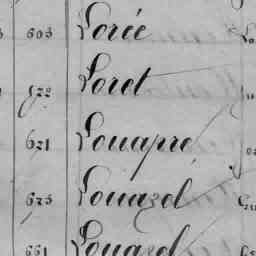 603 Lorée
522 Loret
621 Louapré
625 Louazel
661 Louazel